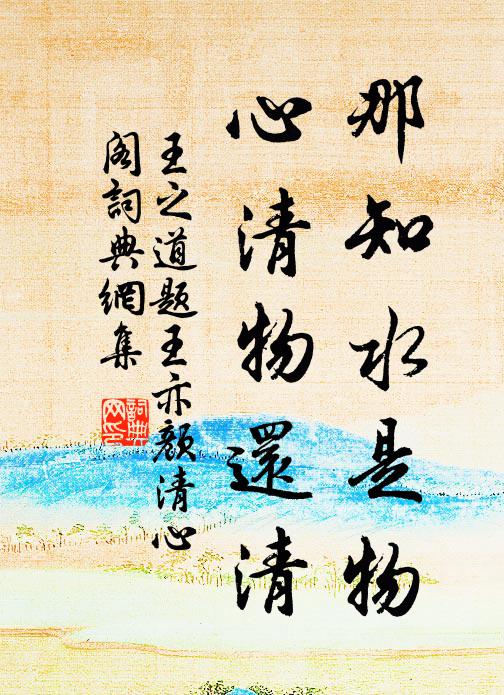 那知水是物
心清物還清
王之道题王亦顏清心
阁詞典網集
詞典
网印